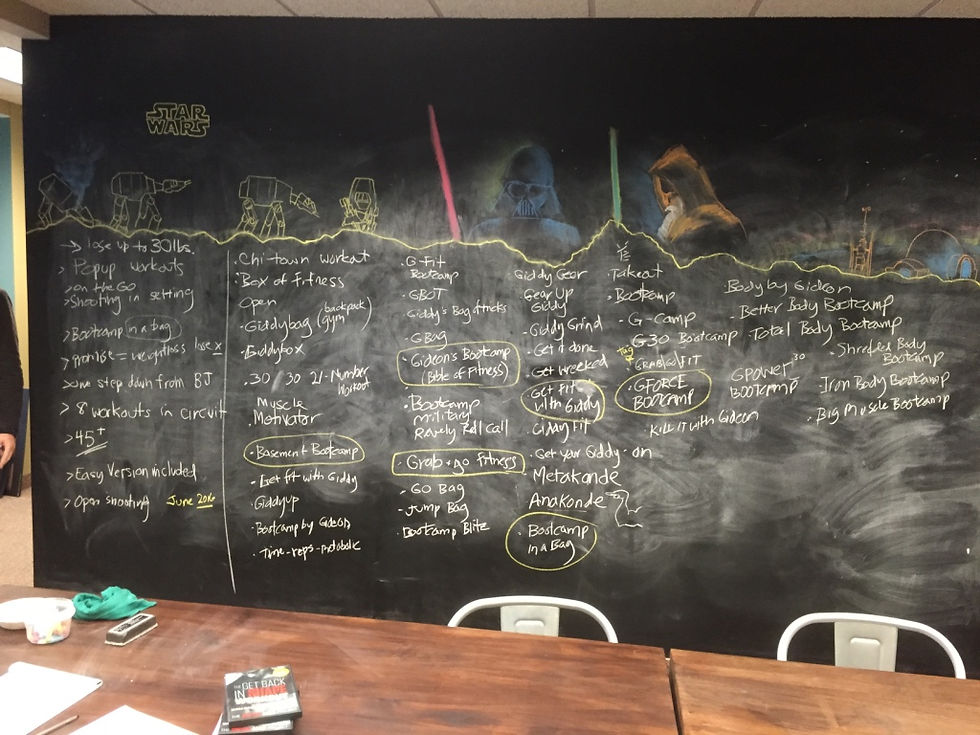 STAR
WARS
→ lose up to 30 lbs.
> Popup workouts
> on the Go
> Shooting in setting
> Bootcamp in a bag
> promise = weightloss lose x
> one step down from BJ
> 8 workouts in circuit
> 45+
> Easy Version included
> Open shooting June 2016
· Chi-town workout
· Box of Fitness
Open
· Giddybag (backpack gym)
· Giddybox
· 30/30 21-Number Workout
Muscle
· Motivator
· Basement Bootcamp
· Get fit with Giddy
· Giddyup
· Bootcamp by Gideon
· Time-reps-metabolic
· G-Fit
Bootcamp
· GBOT
· Giddy's Bag of tricks
· GBag
· Gideon's Bootcamp
(Bible of Fitness)
· Bootcamp
Military
Roll call
· Grab + Go Fitness
· GO Bag
· Jump Bag
· Bootcamp Blitz
Giddy Gear
Gear Up
Giddy
· Giddy Grind
· Get it done
· Get Weeked
· Get Fit
with Giddy
· Giddy Fit
· Get your Giddy-on
· Metakonde
Anakonde
· Bootcamp
in a Bag
· Takeout
· Bootcamp
· G-Camp
G30 Bootcamp
Tag
· GRAB & GO FIT
· GFORCE
BOOTCAMP
· Kill it with Gideon
· Body by Gideon
· Better Body Bootcamp
· Total Body Bootcamp
· Shredded Body
Bootcamp
GPower 30
BOOTCAMP
· Iron Body Bootcamp
· Big Muscle Bootcamp
THE GET BACK
IN